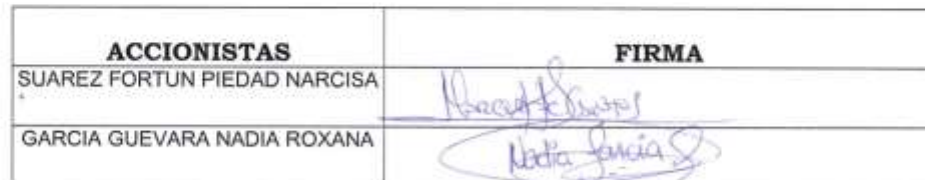 ACCIONISTAS FIRMA
SUAREZ FORTUN PIEDAD NARCISA
GARCIA GUEVARA NADIA ROXANA
Nadia Garcia